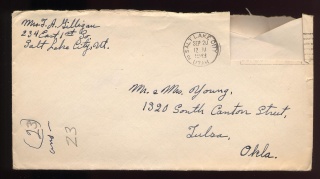 Mrs. T. A. Gilligan
234 East 1st So.
Salt Lake City, Ut.
SALT LAKE CITY
SEP 20
UTAH
Mr. & Mrs. Young,
1320 South Canton Street,
Tulsa,
Okla.
(23)
and -
23